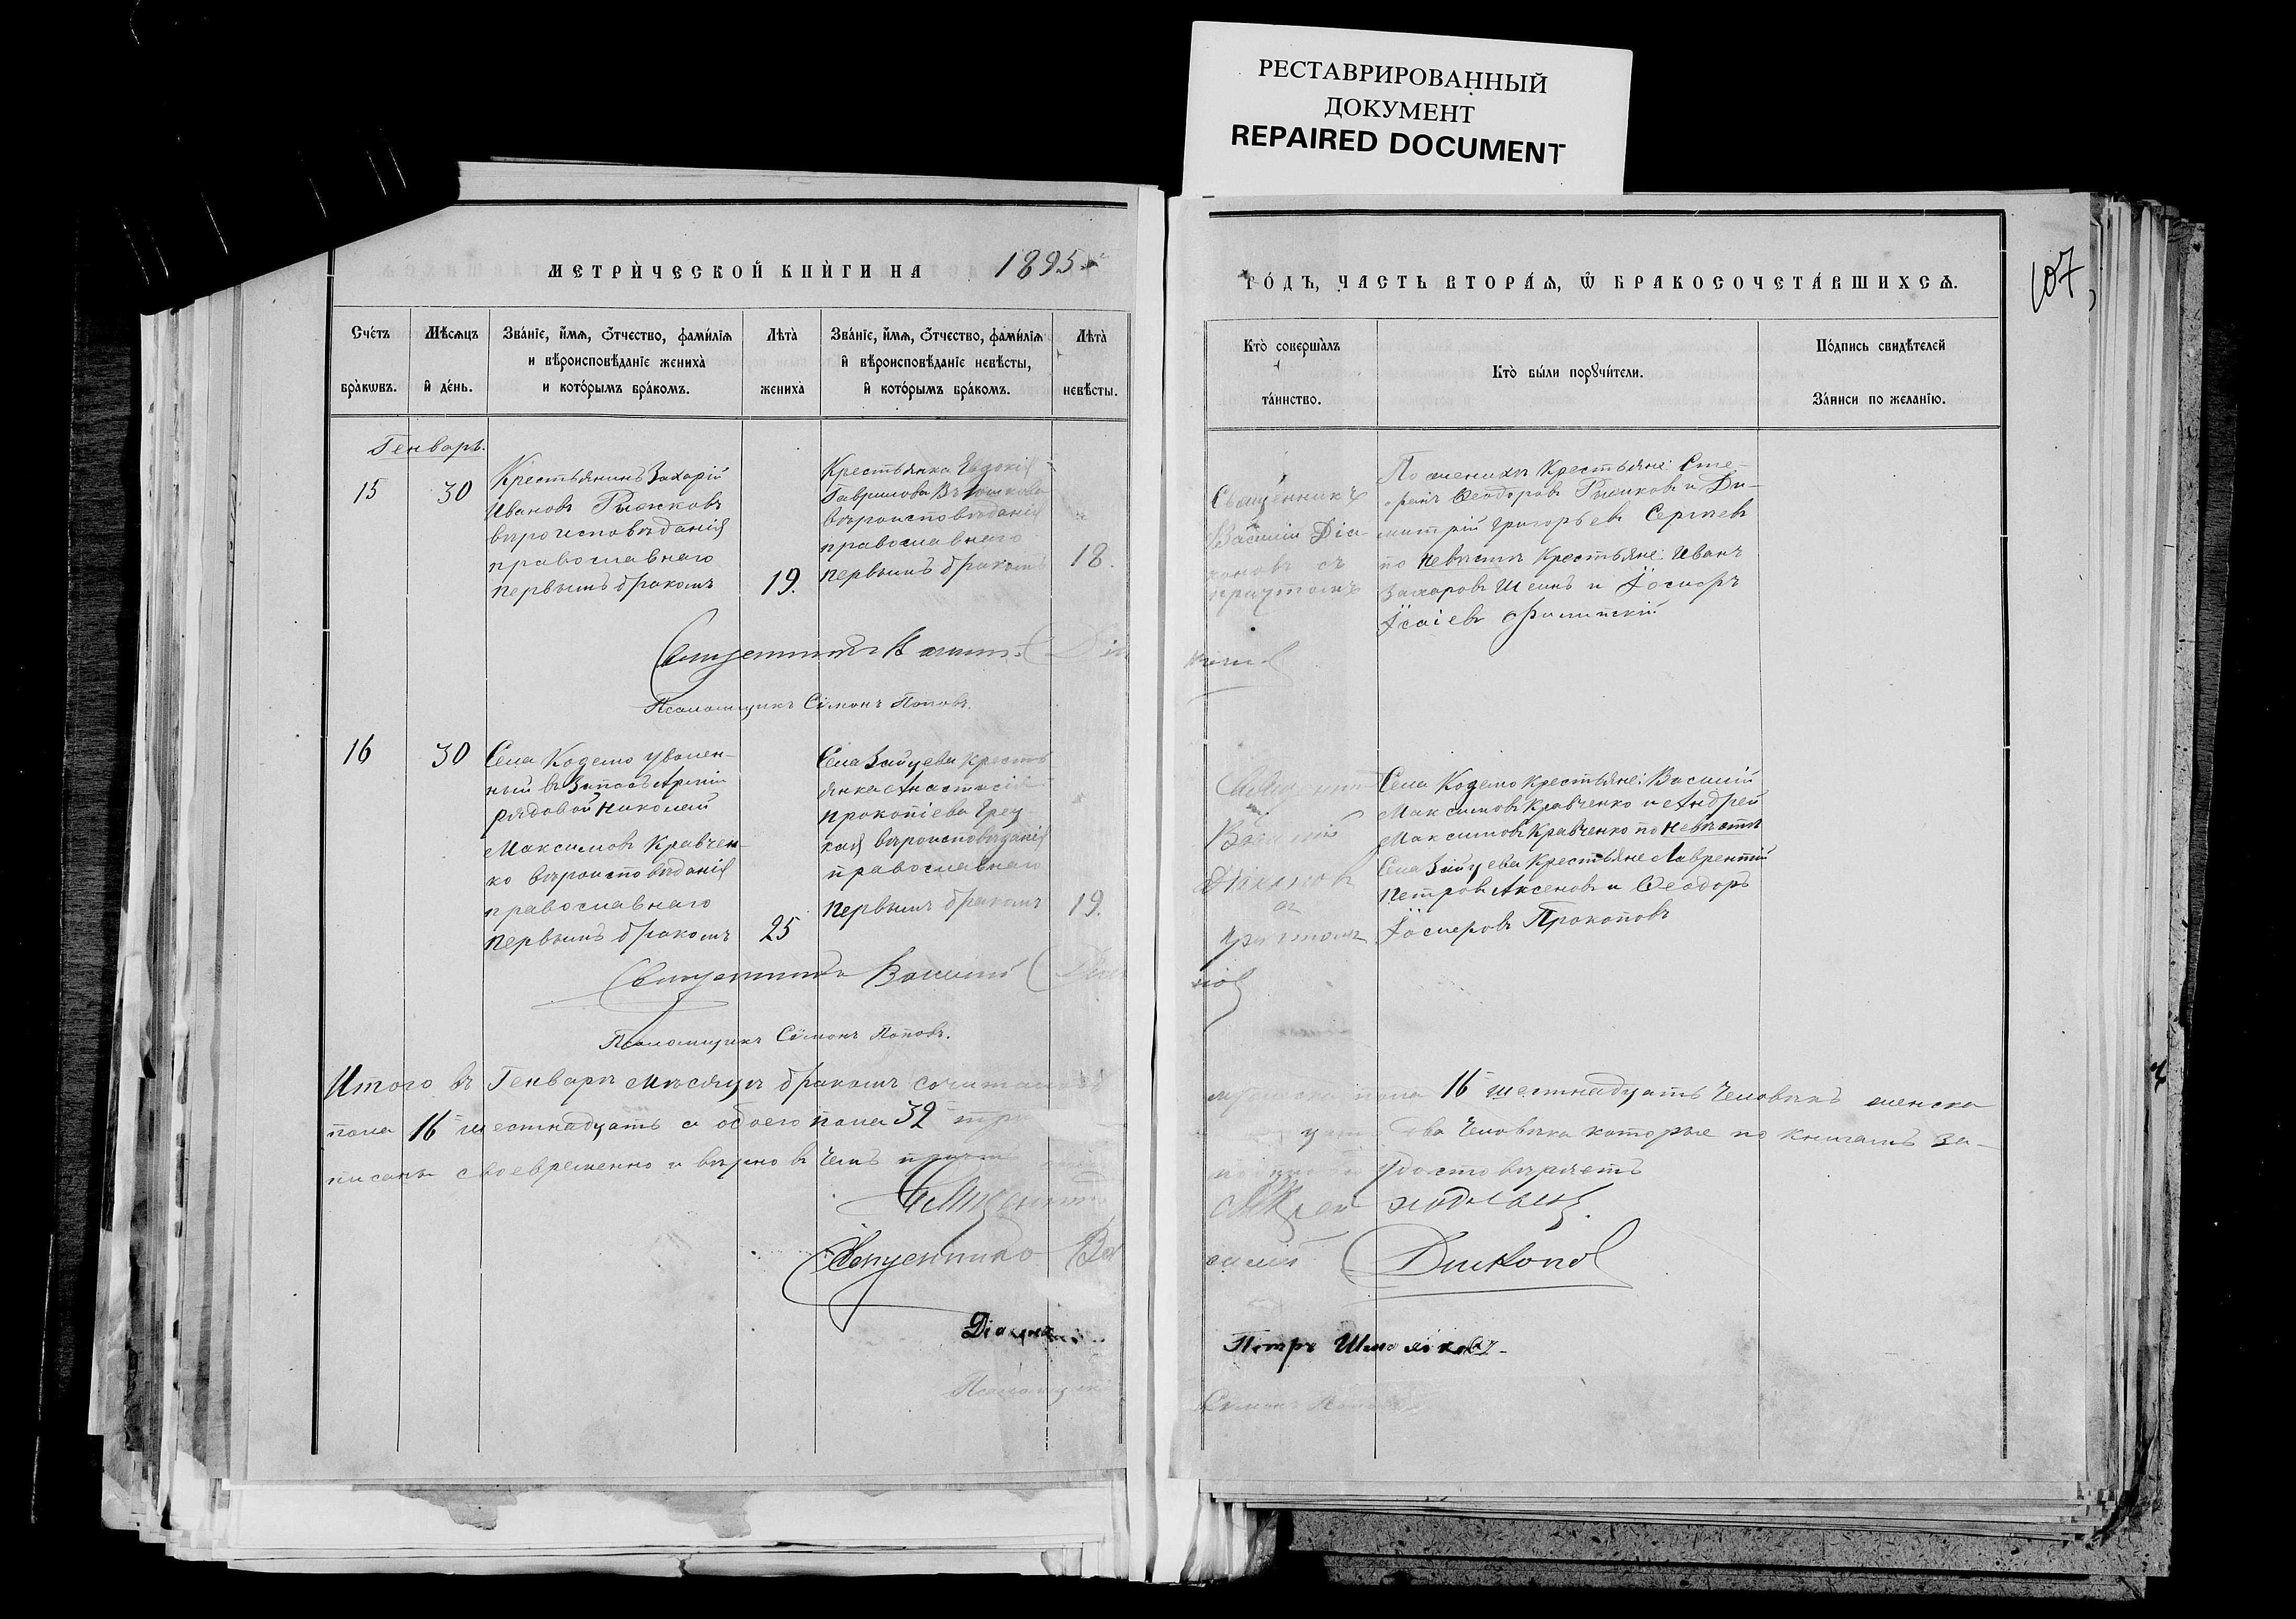 РЕСТАВРИРОВАННЫЙ
ДОКУМЕНТ
REPAIRED DOCUMENT
МЕТРИ́ЧЕСКОЙ КНИ́ГИ НА 1895
ГО́ДЪ, ЧАСТЬ ВТОРА́Ѧ, Ѡ҆ БРАКОСОЧЕТА́ВШИХСѦ.
107
Сче́тъ
бра́кѡвъ.
Мѣ́сѧцъ
и҆ де́нь.
Зва́нїе, и҆́мѧ, ѻ҆́тчество, фами́лїѧ
и вѣроисповѣ́данїе жениха̀
и кото́рымъ бра́комъ.
Лѣ́та̀
жениха̀
Зва́нїе, и҆́мѧ, ѻ҆́тчество, фами́лїѧ
и҆ вѣроисповѣ́данїе невѣ́сты,
и҆ кото́рымъ бра́комъ.
Лѣ́та̀
невѣ́сты.
Кто̀ соверша́лъ
та́инство.
Кто̀ бы́ли порꙋчи́тели.
По́дпись свидѣ́телей
За́писи по жела́нїю.
Генварь.
15
30
Крестьянинъ Захарій
Ивановъ Рыжковъ
вѣроисповѣданія
православнаго
первымъ бракомъ
19.
Крестьянка Евдокія
Гаврилова
вѣроисповѣданія
православнаго
первымъ бракомъ
18.
Священникъ
Василій Діа
коновъ съ
причтомъ
По женихѣ Крестьяне: Сте-
фанъ Ѳеодоровъ Рыжковъ и Ди-
митрій Григорьевъ Сергѣевъ
по Невѣстѣ Крестьяне: Иванъ
Захаровъ Шеинъ и Іосифъ
Ісаіевъ Филипскій
Священникъ Василій Діа
коновъ
Псаломщикъ Сѵмонъ Поповъ.
16
30
Села Кодемо уволен-
ный въ Запасъ Арміи
рядовой Николай
Максимовъ Кравчен-
ко вѣроисповѣданія
православнаго
первымъ бракомъ
25
Села Зайцева Кресть
янка Анастасія
Прокопіева Грец
кая вѣроисповѣданія
православнаго
первымъ бракомъ
19.
Священникъ
Василій
Діаконовъ
съ
причтомъ
Села Кодемо Крестьяне: Василій
Максимовъ Кравченко и Андрей
Максимовъ Кравченко по Невѣстѣ
Села Зайцева Крестьяне Лаврентій
Петровъ Аксеновъ и Ѳеодоръ
Іосифовъ Прокоповъ
Священникъ Василій Діако
новъ
Псаломщикъ Сѵмонъ Поповъ.
Итого въ Генварѣ мѣсяцѣ бракомъ сочиталось мужеска пола 16 шестнадцать человѣкъ женска
пола 16 шестнадцать а обоего пола 32 тридцать два человѣка которые по книгамъ за-
писаны своевременно и вѣрно въ чемъ удостовѣряетъ
Священникъ
Священникъ Василій Діаконовъ
Діаконъ Петръ
Псаломщикъ Симонъ Поповъ